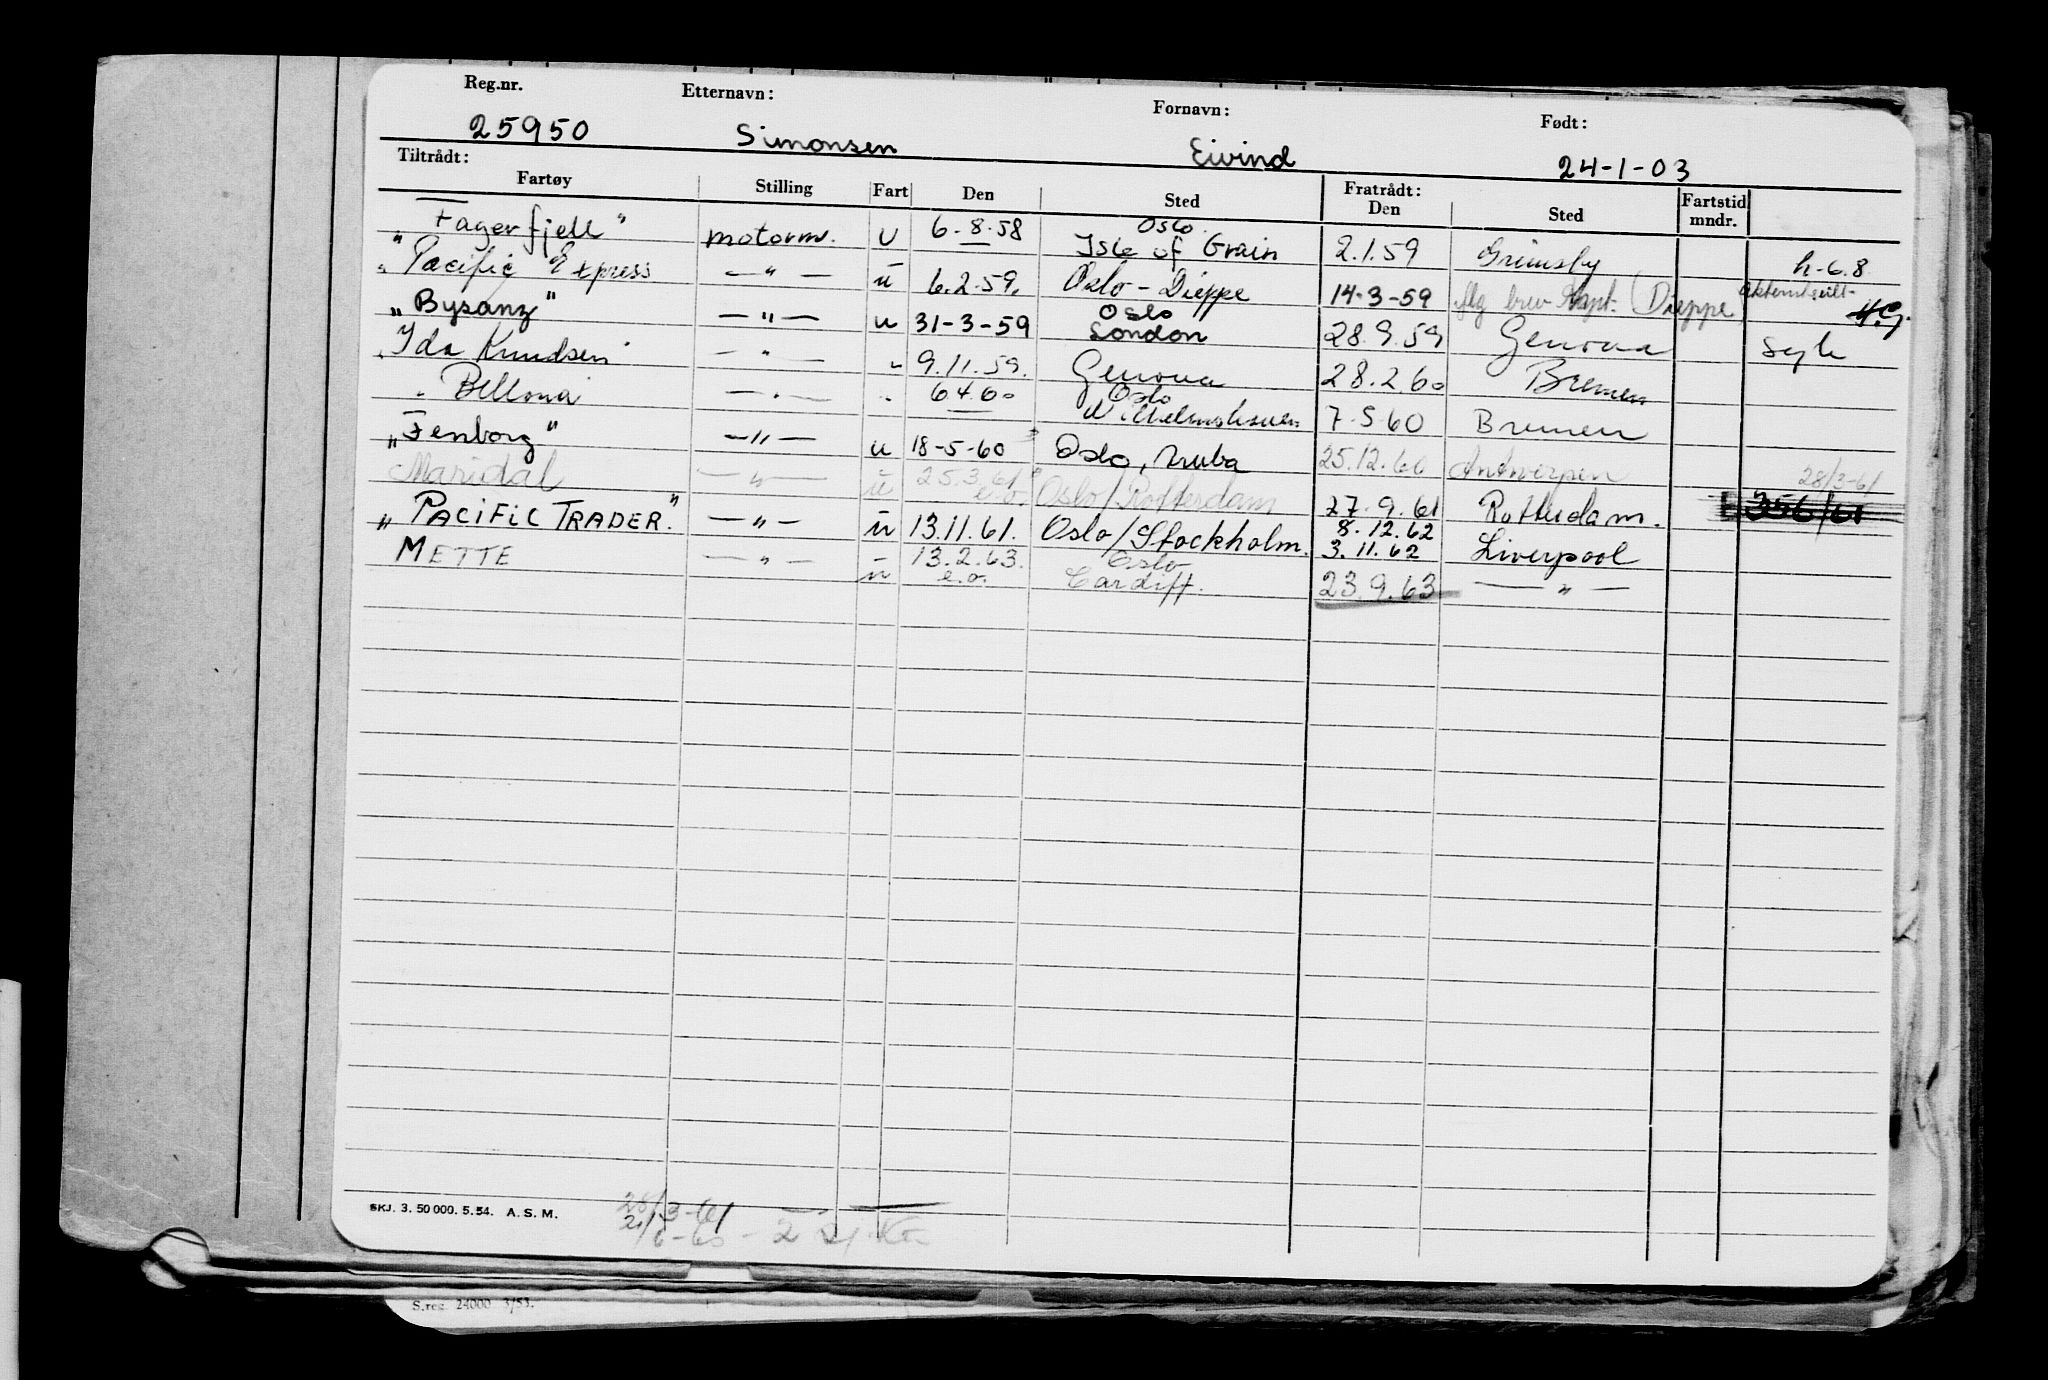 Reg.nr. Etternavn: Fornavn: Født:
25950 Simonsen Eivind 24-1-03
Tiltrådt: Fratrådt:
Fartøy Stilling Fart Den Sted Den Sted Fartstid mndr.
"Fagerfjell" motorm. U 6-8-58 Oslo Isle of Grain 2.1.59 Grimsby h-6.8
"Pacific Express — " — u 6.2-59. Oslo-Dieppe 14-3-59 flg brev Kapt. (Dieppe)
"Bysanz" — " — u 31-3-59 Oslo London 28.9.59 Genova syk
"Ida Knudsen" — " — " 9.11.59. Genova 28.2.60 Bremen
" Bellona — " — " 6 4 60 Oslo Wilhelmshaven 7-5-60 Bremen
"Fenborg" — " — u 18-5-60 Oslo, Aruba 25.12.60 Antwerpen
Maridal — " — u 25.3.61 e.o. Oslo/Rotterdam 27.9.61 Rotterdam. 28/3-61
356/61
"PACIFIC TRADER." — " — u 13.11.61. Oslo/Stockholm. 8.12.62 3.11.62 Liverpool
METTE — " — u 13.2.63. e.o. Oslo Cardiff. 23.9.63 — " —
SKJ. 3. 50 000. 5.54. A. S. M.
28/3-61
S.reg. 24000 3/53.